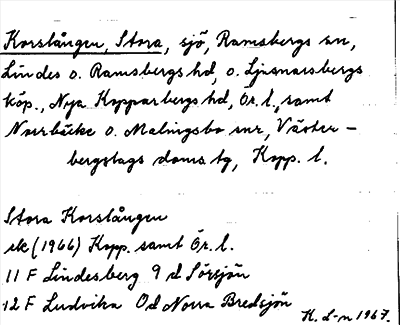 Korslången, Stora, sjö, Ramsbergs sn,
Lindes o. Ramsbergs hd, o. Ljusnarsbergs
köp., Nya Kopparbergs hd, Ör. l., samt
Norrbärke o. Malingsbo snr, Väster-
bergslags doms. tg, Kopp. l.
Stora Korslången
ek (1966) Kopp. samt Ör. l.
11 F Lindesberg 9 d Sörsjön
12 F Ludvika 0 d Norra Bredsjön
K. L-n 1967.